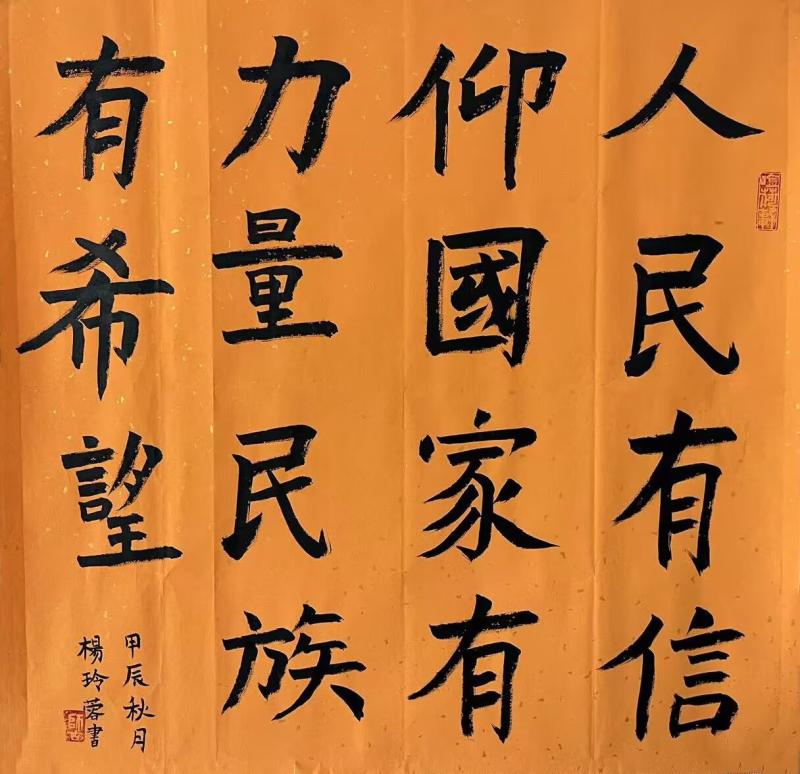 人民有信
仰國家有
力量民族
有希望
甲辰秋月
楊玲蓉書